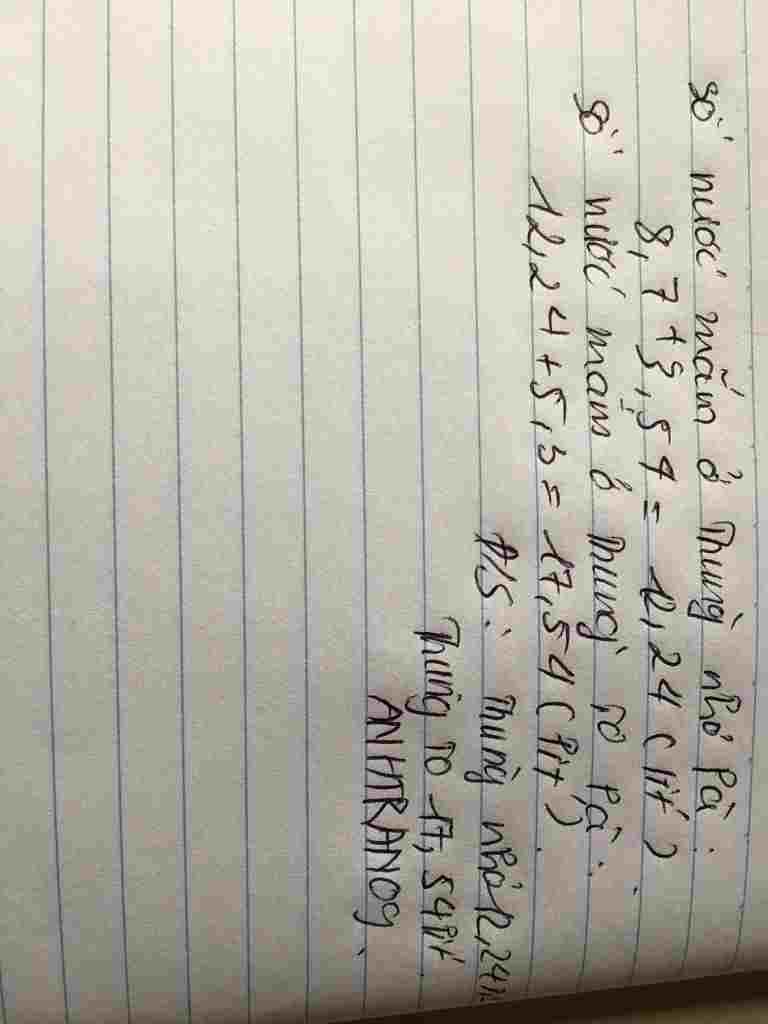 số nước mắm ở Thùng nhỏ là :
8,7 + 3,54 = 12,24 ( lít )
số nước mắm ở thùng to là :
12,24 + 5,3 = 17,54 ( lít )
Đ/S : Thùng nhỏ 12,24 l
Thùng to 17,54 lít
ANHTRAN09